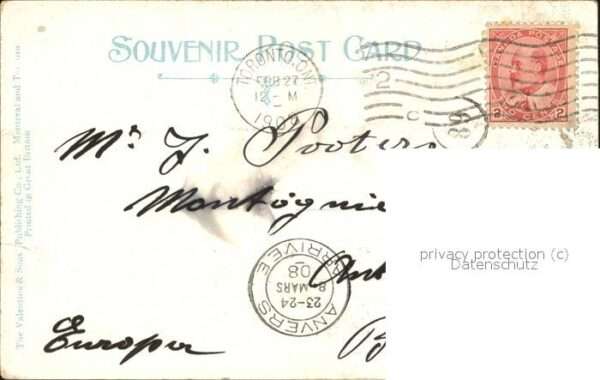 SOUVENIR POST CARD
TORONTO, ONT.
FEB 27
12 – M
1908
2
C
89
CANADA POSTAGE
2 CENTS 2
Mr. J. Pooters
Montognie
Ant
B
Europa
ANVERS
23-24
8 MARS
08
ARRIVEE
privacy protection (c)
Datenschutz
The Valentine & Sons Publishing Co., Ltd. Montreal and Toronto
Printed in Great Britain